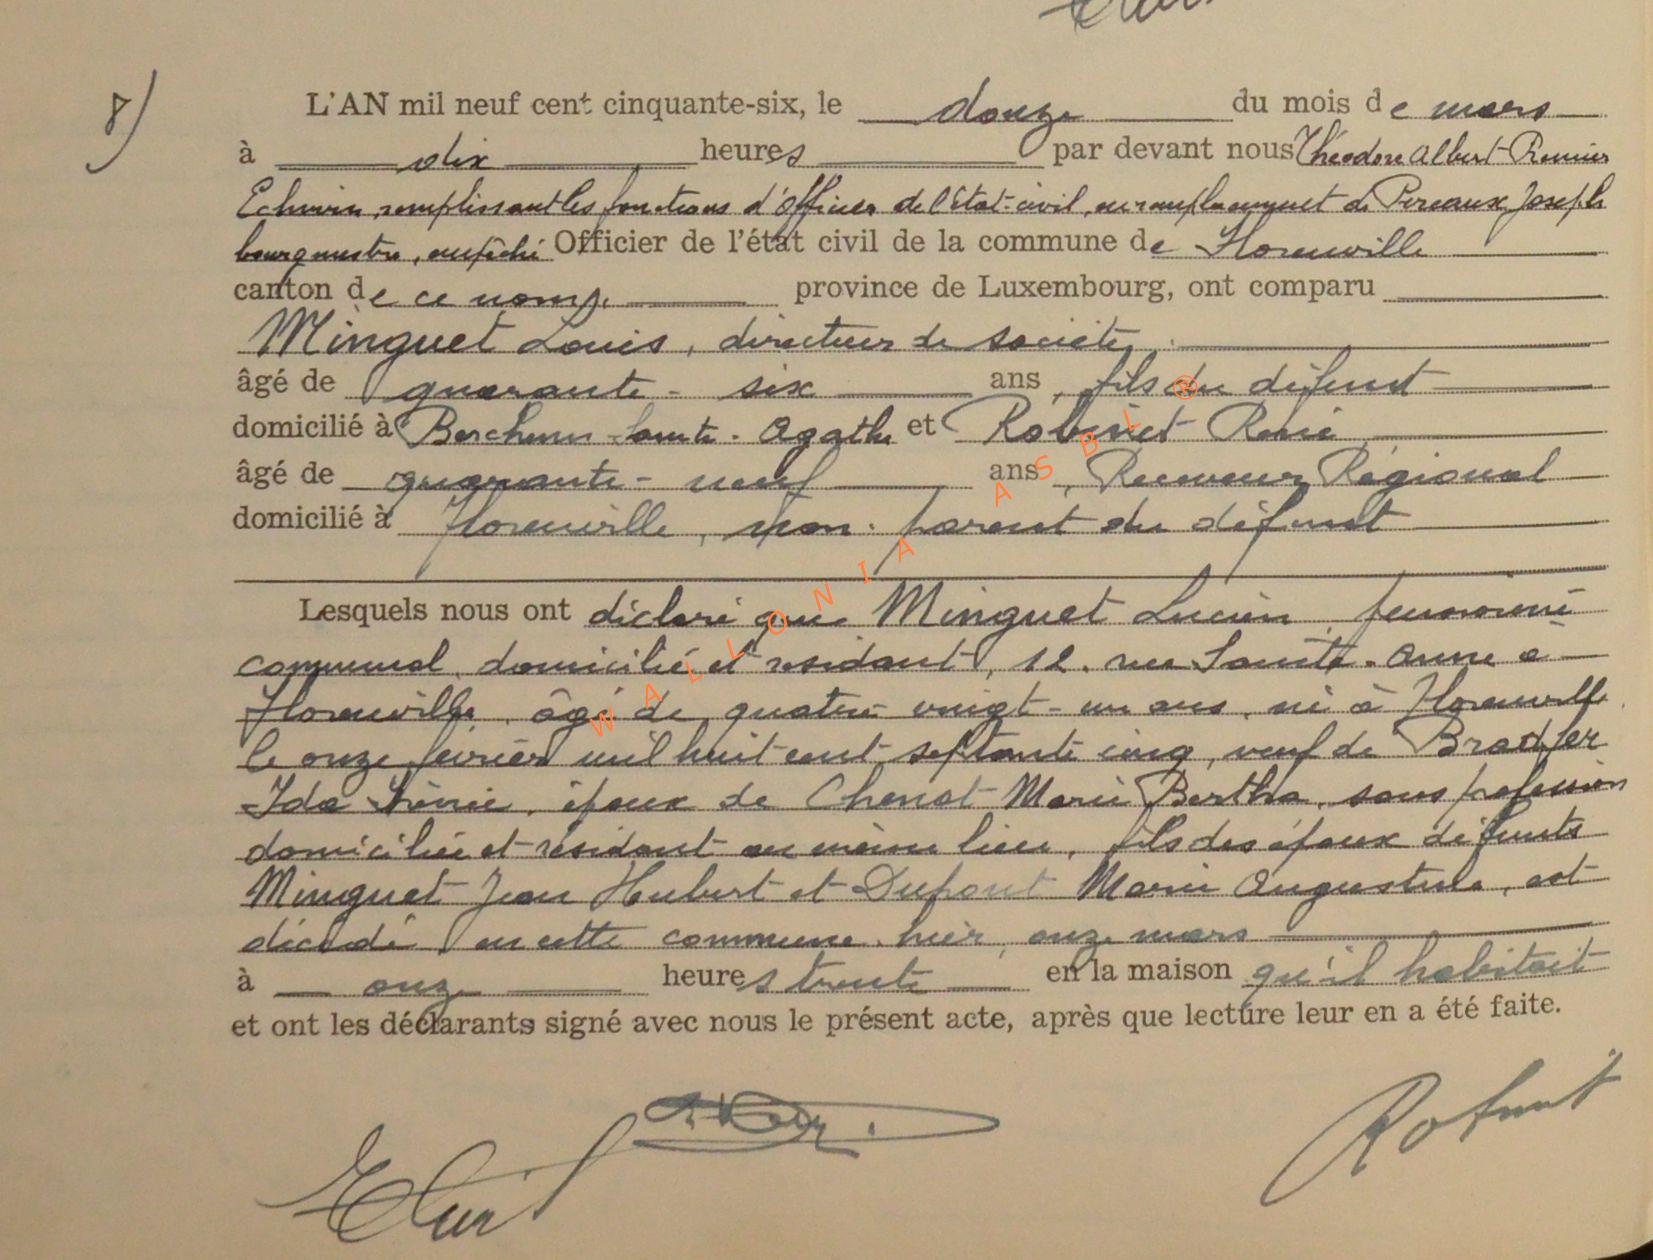 8)
L'AN mil neuf cent cinquante-six, le douze du mois de mars
à dix heures par devant nous Théodore Albert
Echevin, remplissant les fonctions d'Officier de l'état-civil, en remplacement de Joseph
bourgmestre, empêché Officier de l'état civil de la commune de Florenville
canton de ce nom, province de Luxembourg, ont comparu
Minguet Louis, directeur de société,
âgé de quarante-six ans, fils du défunt
domicilié à Berchem-Sainte-Agathe et Robinet René
âgé de quarante-neuf ans, Receveur Régional
domicilié à Florenville, non-parent du défunt
Lesquels nous ont déclaré que Minguet Lucien, pensionné
communal, domicilié et résidant, 12, rue Sainte-Anne à
Florenville, âgé de quatre vingt-un ans, né à Florenville
le onze février mil huit cent septante cinq, veuf de Bradfer
Ida Irénée, époux de Chenot Marie Bertha, sans profession
domiciliée et résidant au même lieu, fils des époux défunts
Minguet Jean Hubert et Dupont Marie Augustine, est
décédé en cette commune, hier, onze mars
à onze heures trente en la maison qu'il habitait
et ont les déclarants signé avec nous le présent acte, après que lecture leur en a été faite.
WALLONIA ASBL ®